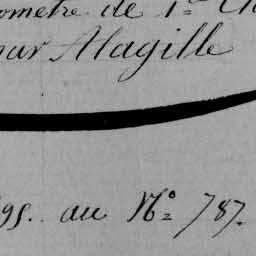 omètre de 1re Cl
par Alagille
gs. au No 787.